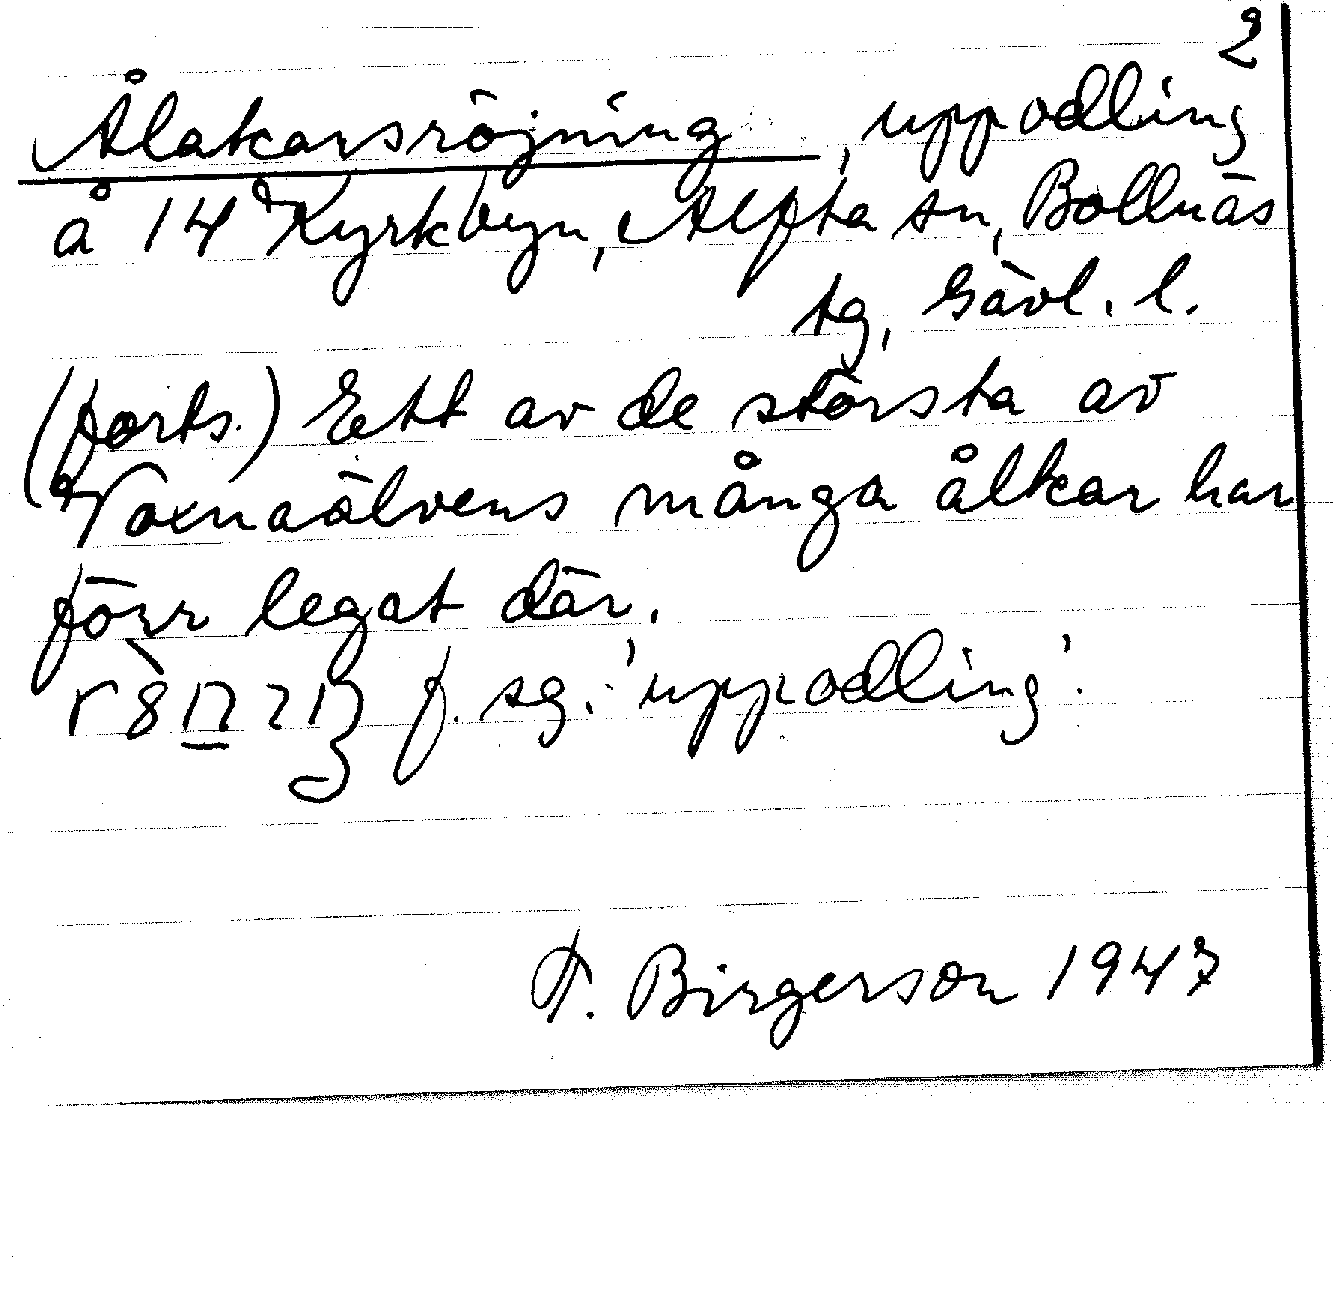 2
Ålakarsröjning, uppodling
å 14 Kyrkbyn, Alfta sn, Bollnäs
tg, Gävl. l.
(forts.) Ett av de största av
Voxnaälvens många ålkar har
förr legat där.
f. sg. 'uppodling'.
F. Birgerson 1947